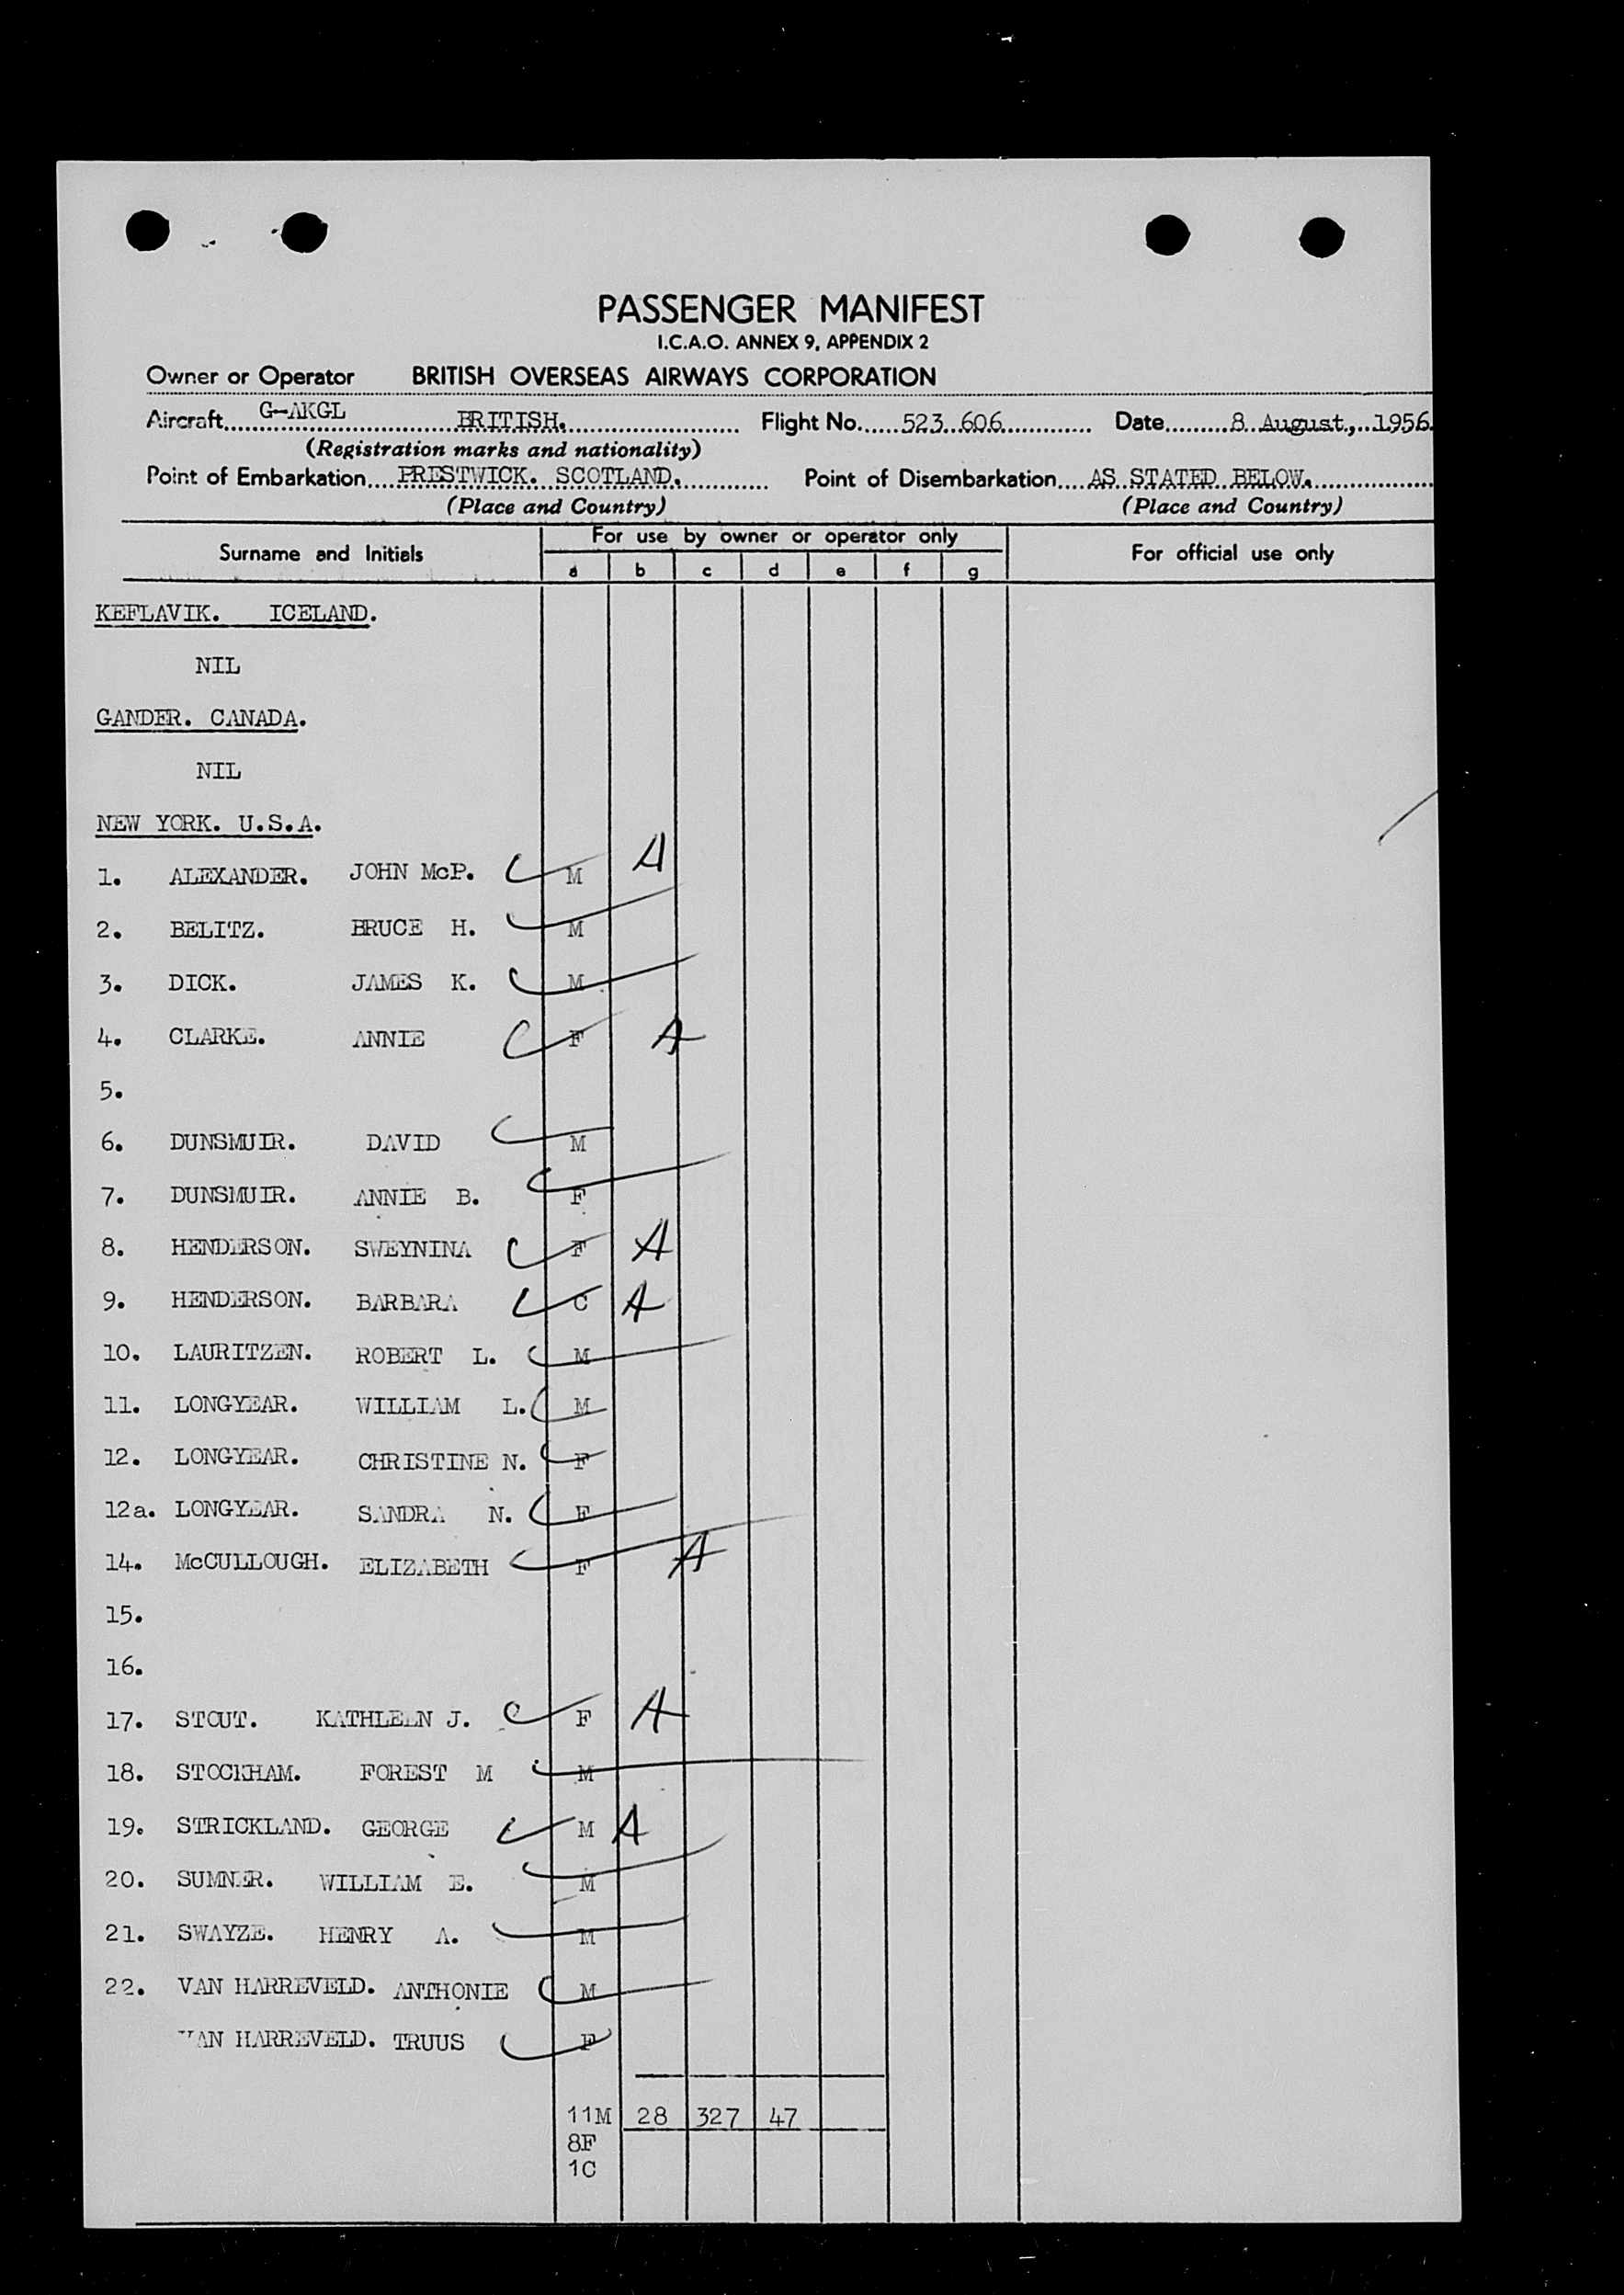 PASSENGER MANIFEST
I.C.A.O. ANNEX 9, APPENDIX 2
Owner or Operator BRITISH OVERSEAS AIRWAYS CORPORATION
Aircraft G-AKGL BRITISH. Flight No. 523 606 Date 8 August, 1956
(Registration marks and nationality)
Point of Embarkation PRESTWICK. SCOTLAND. Point of Disembarkation AS STATED BELOW.
(Place and Country) (Place and Country)
Surname and Initials For use by owner or operator only For official use only
a b c d e f g
KEFLAVIK. ICELAND.
NIL
GANDER. CANADA.
NIL
NEW YORK. U.S.A.
1. ALEXANDER. JOHN McP. M A
2. BELITZ. BRUCE H. M
3. DICK. JAMES K. M
4. CLARKE. ANNIE F A
5.
6. DUNSMUIR. DAVID M
7. DUNSMUIR. ANNIE B. F
8. HENDERSON. SWEYNINA F A
9. HENDERSON. BARBARA C A
10. LAURITZEN. ROBERT L. M
11. LONGYEAR. WILLIAM L. M
12. LONGYEAR. CHRISTINE N. F
12a. LONGYEAR. SANDRA N. F
14. McCULLOUGH. ELIZABETH F A
15.
16.
17. STOUT. KATHLEEN J. F A
18. STOCKHAM. FOREST M M
19. STRICKLAND. GEORGE M A
20. SUMNER. WILLIAM E. M
21. SWAYZE. HENRY A. M
22. VAN HARREVELD. ANTHONIE M
VAN HARREVELD. TRUUS F
11M 28 327 47
8F
1C